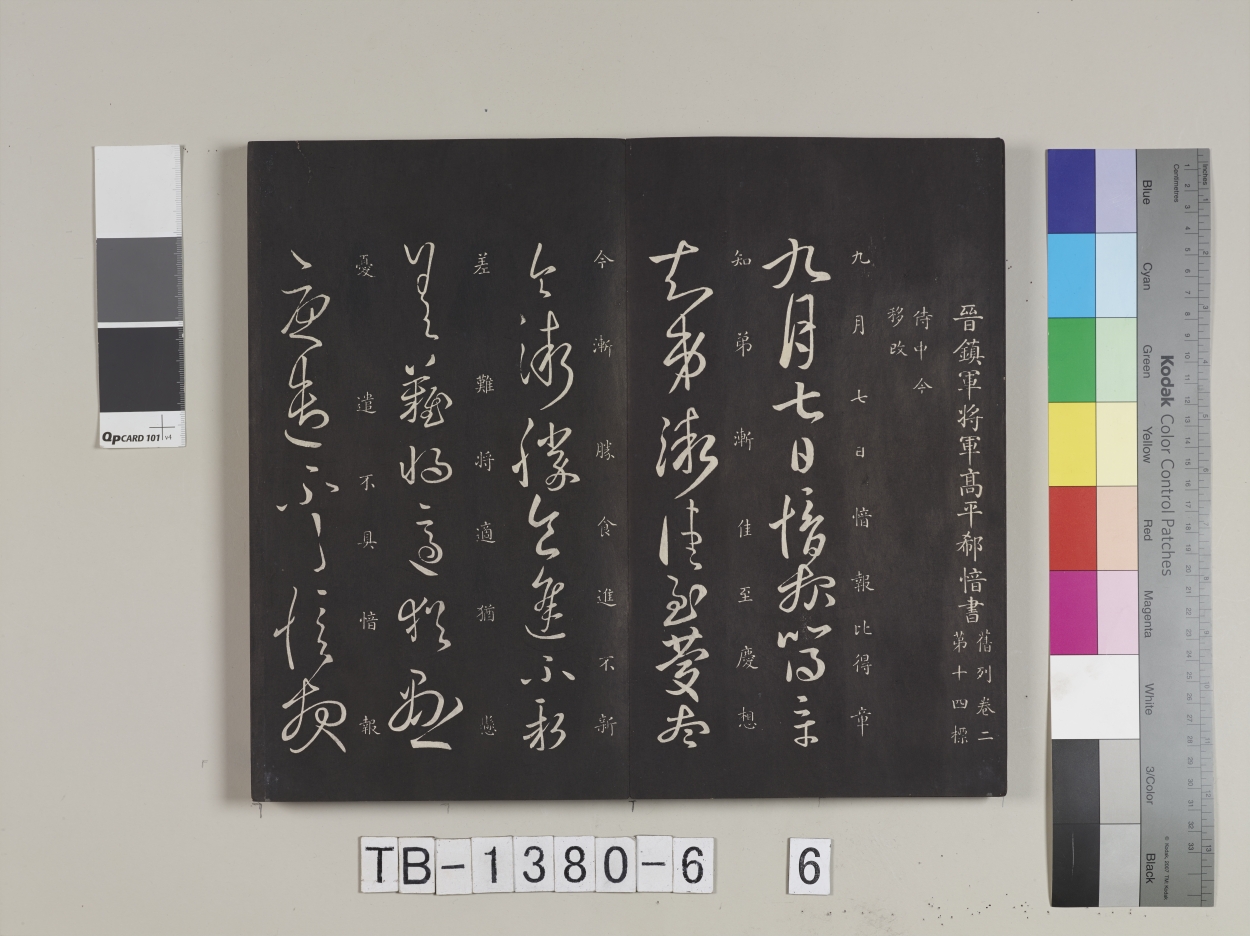 晉鎮軍將軍高平郗愔書
舊列卷二
第十四標
侍中今
移改
九月七日愔報比得章
九月七日愔報比得章
知弟漸佳至慶想
知弟漸佳至慶想
今漸勝食進不新
今漸勝食進不新
差難將適猶懸
差難將適猶懸
憂遣不具愔報
憂遣不具愔報
QPCARD 101 v4
TB-1380-6 6
Kodak Color Control Patches
Blue Cyan Green Yellow Red Magenta White 3/Color Black
Inches
Centimetres